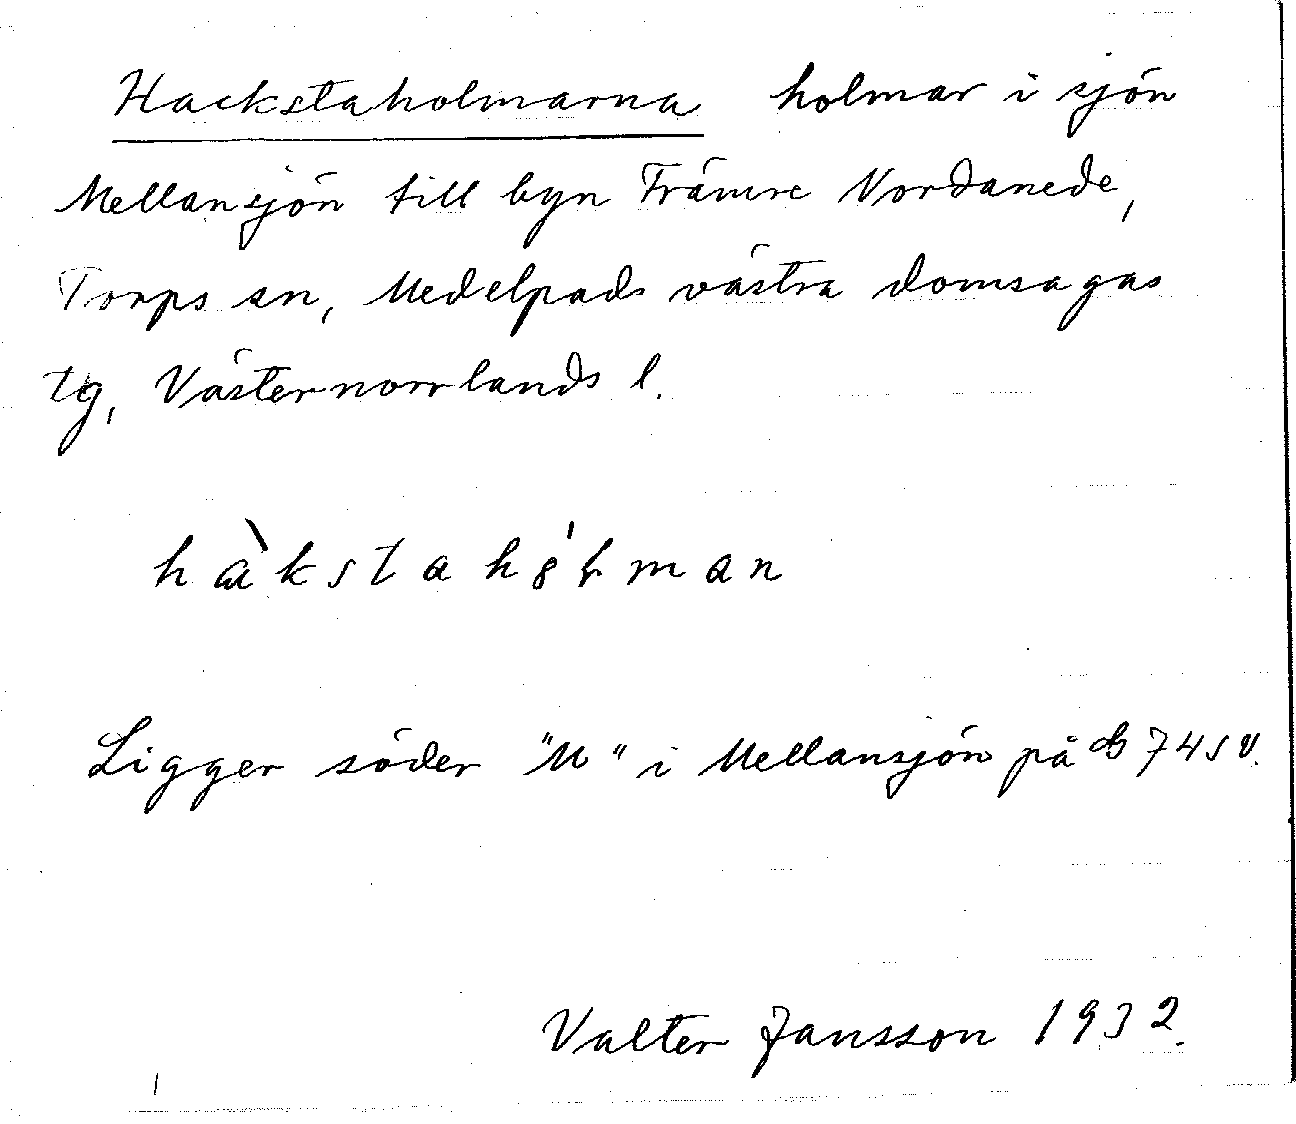 Hackstaholmarna holmar i sjön
Mellansjön till byn Främre Nordanede,
Torps sn, Medelpads västra domsagas
tg, Västernorrlands l.
hàkstahólman
Ligger söder "M" i Mellansjön på 74 SV.
Valter Jansson 1932.